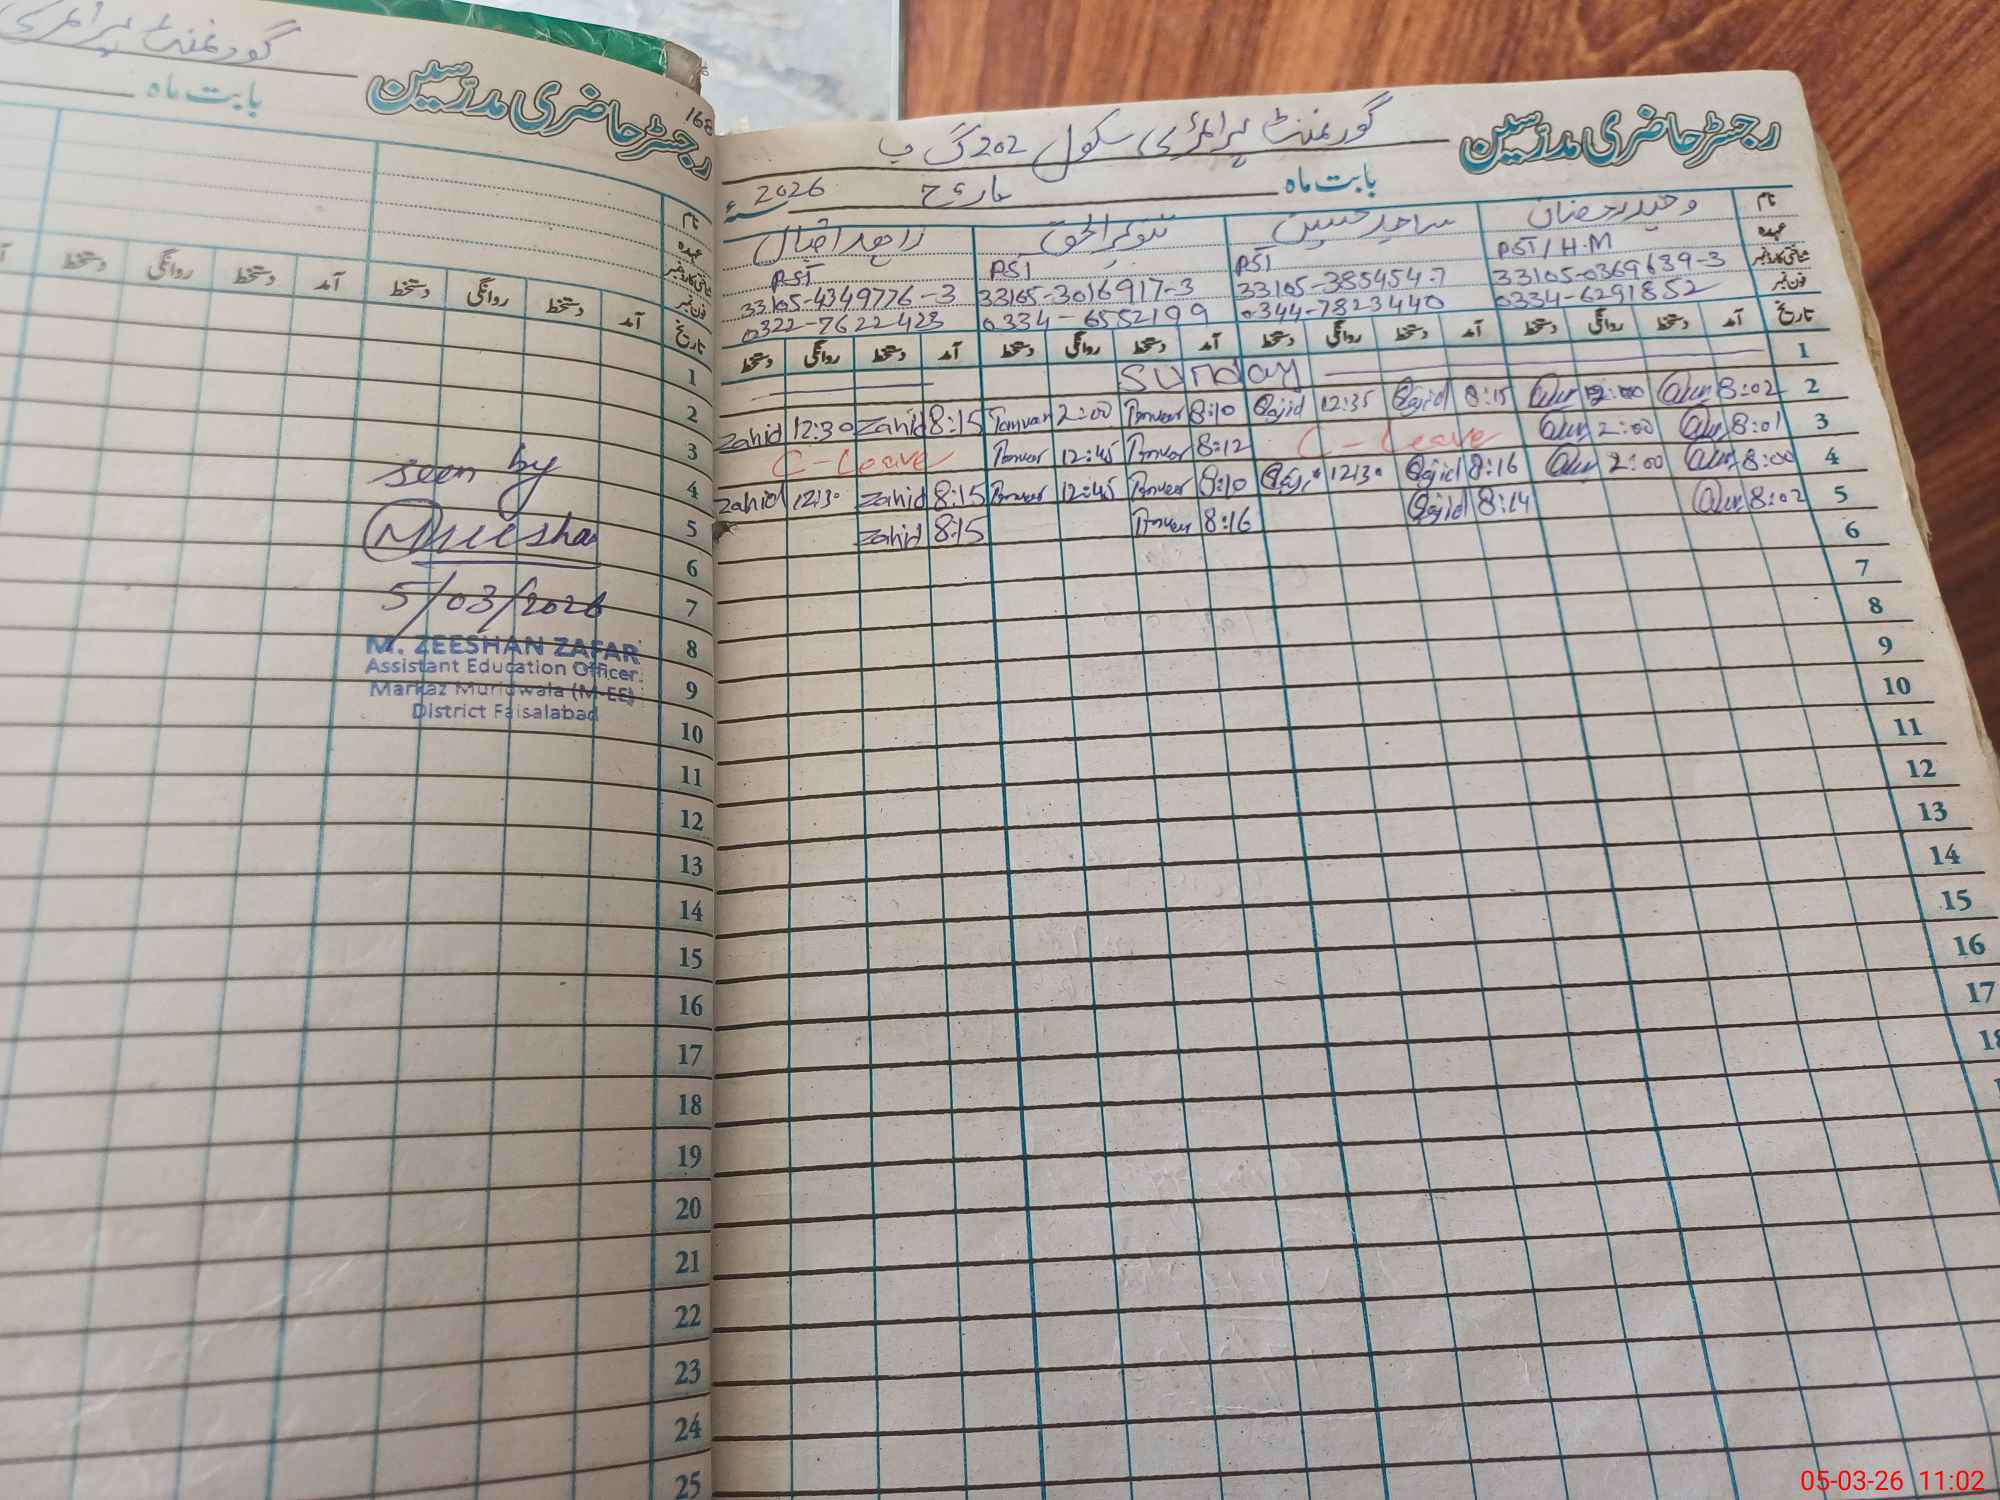 گورنمنٹ پرائمری
رجسٹر حاضری مدرسین
بابت ماہ
168
نام
عہدہ
شناختی کارڈ نمبر
فون نمبر
تاریخ
آمد دستخط روانگی دستخط آمد دستخط روانگی دستخط
1
2
3
4
5
6
7
8
9
10
11
12
13
14
15
16
17
18
19
20
21
22
23
24
25
seen by
5/03/2026
M. ZEESHAN ZAFAR
Assistant Education Officer
Markaz Muridwala (M-EE)
District Faisalabad
رجسٹر حاضری مدرسین گورنمنٹ پرائمری سکول 202 گ ب
بابت ماہ مارچ 2026ء
نام ساجد حسین تنویر الحق زاہد اقبال
عہدہ PST/H.M PST PST PST
شناختی کارڈ نمبر 33105-0369639-3 33105-385454-7 33105-3016917-3 33105-4349776-3
فون نمبر 0334-6291852 0344-7823440 0334-6552199 0322-7622423
تاریخ آمد دستخط روانگی دستخط آمد دستخط روانگی دستخط آمد دستخط روانگی دستخط آمد دستخط روانگی دستخط
1 Sunday
2 8:02 8:15 Sajid 12:35 Sajid 8:10 Tanveer 2:00 Tanveer 8:15 Zahid 12:30 Zahid
3 8:01 2:00 C-Leave 8:12 Tanveer 12:45 Tanveer C-Leave
4 8:00 2:00 8:16 Sajid 12:30 Sajid 8:10 Tanveer 12:45 Tanveer 8:15 Zahid 12:30 Zahid
5 8:02 8:14 Sajid 8:16 Tanveer 8:15 Zahid
6
7
8
9
10
11
12
13
14
15
16
17
18
05-03-26 11:02